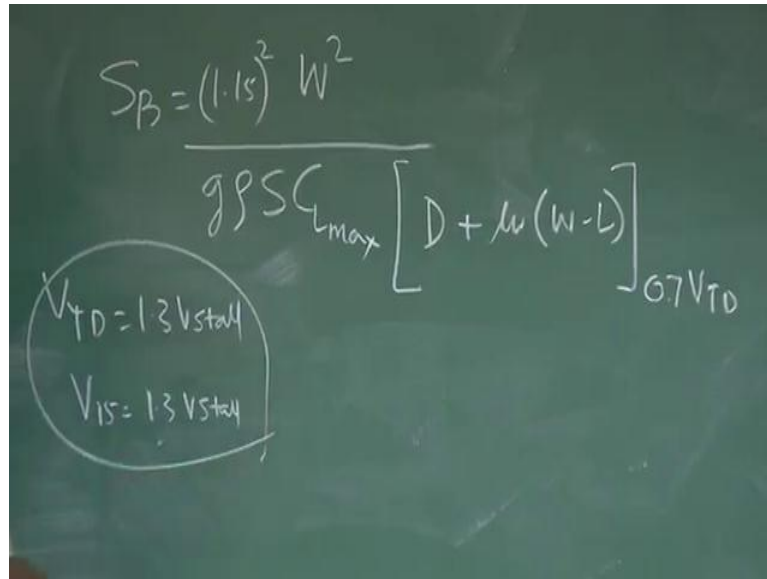 S_B = (1.15)^2 W^2
gρSC_Lmax [D + μ(W-L)]_0.7V_TD
V_TD = 1.3 Vstall
V_15 = 1.3 Vstall